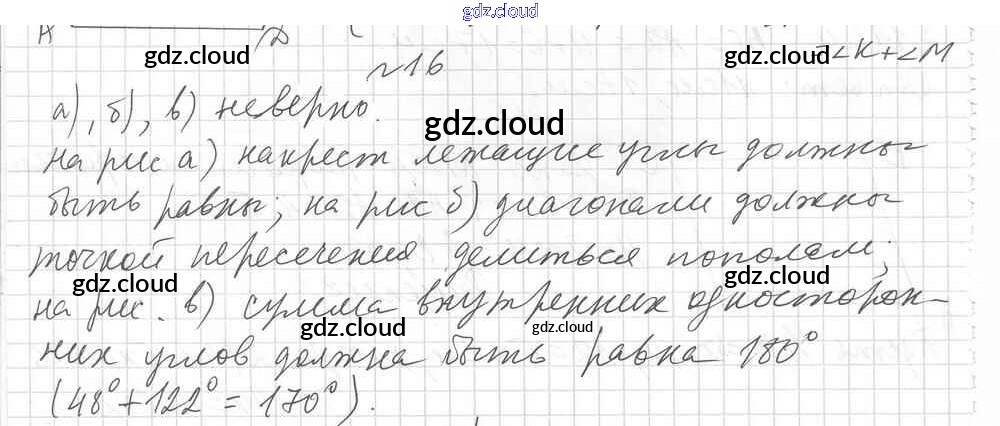 gdz.cloud
A D
gdz.cloud gdz.cloud = ∠K + ∠M
№16
а), б), в) неверно.
gdz.cloud
на рис а) накрест лежащие углы должны
быть равны; на рис б) диагонали должны
точкой пересечения делиться пополам;
gdz.cloud gdz.cloud
на рис. в) сумма внутренних односторон-
gdz.cloud gdz.cloud
них углов должна быть равна 180°
(48° + 122° = 170°).